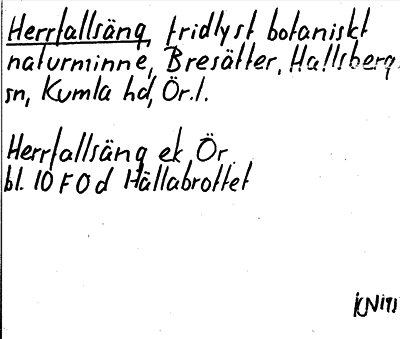 Herrfallsäng, fridlyst botaniskt
naturminne, Bresätter, Hallsberg
sn, Kumla hd, Ör.l.
Herrfallsäng ek, Ör.
bl. 10 F 0 d Hällabrottet